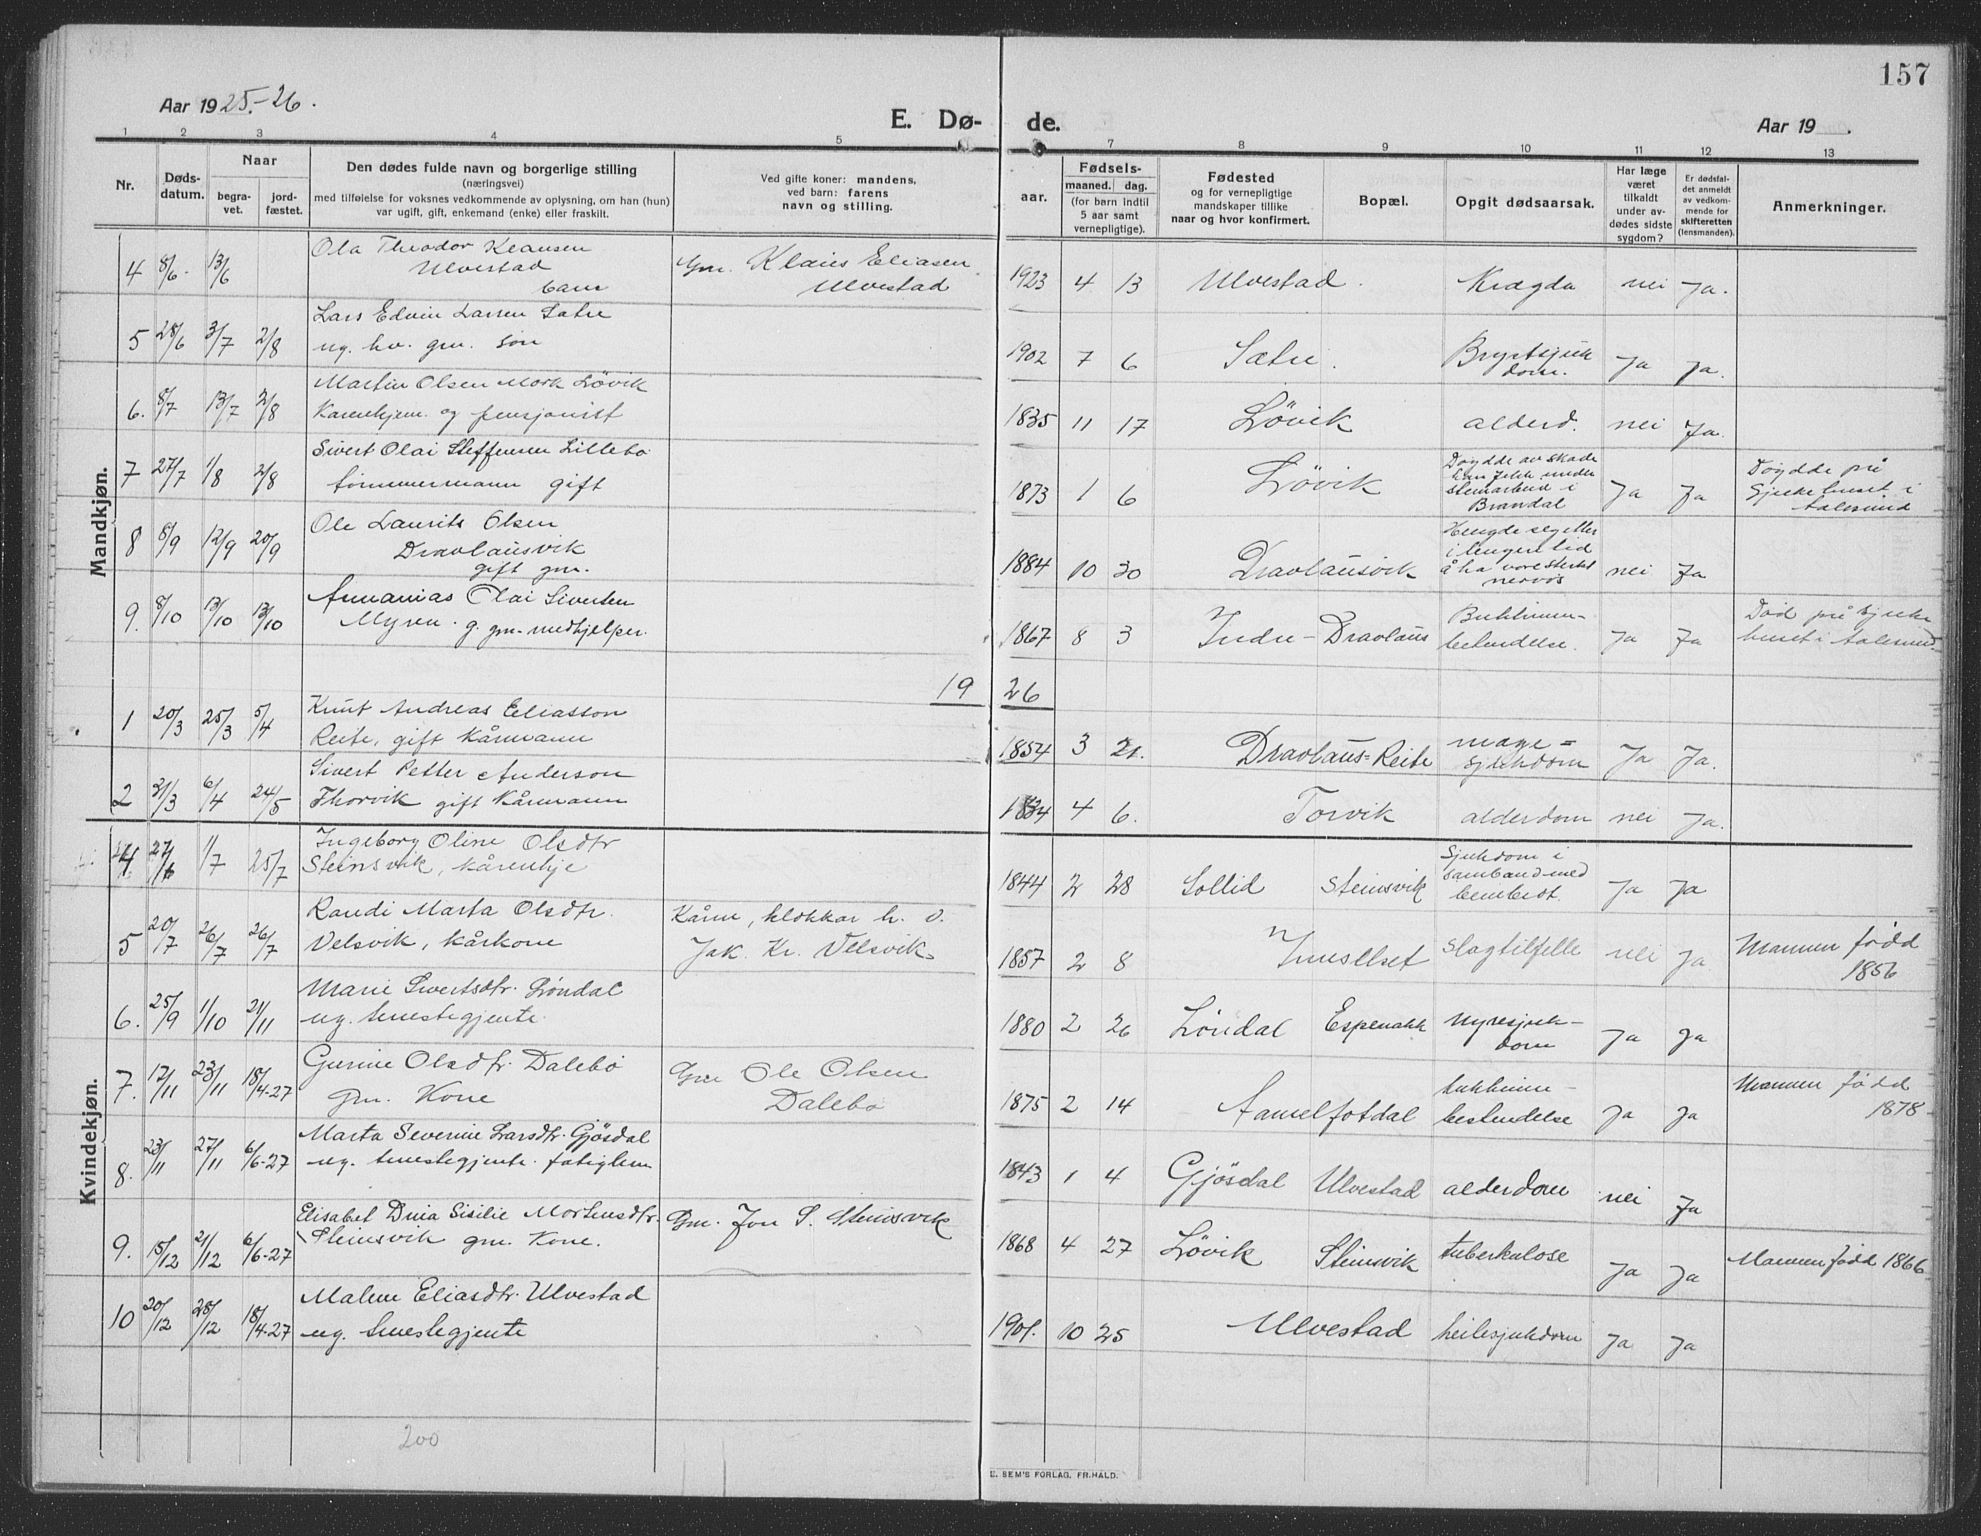 157
Aar 1925-26.
E. Dø-
de.
Aar 19 .
1 2 3 4 5 7 8 9 10 11 12 13
Nr.
Døds-
datum.
Naar
begra-
vet.
jord-
fæstet.
Den dødes fulde navn og borgerlige stilling
(næringsvei)
med tilføielse for voksnes vedkommende av oplysning, om han (hun)
var ugift, gift, enkemand (enke) eller fraskilt.
Ved gifte koner: mandens,
ved barn: farens
navn og stilling.
aar.
Fødsels-
maaned. dag.
(for barn indtil
5 aar samt
vernepligtige).
Fødested
og for vernepligtige
mandskaper tillike
naar og hvor konfirmert.
Bopæl.
Opgit dødsaarsak.
Har læge
været
tilkaldt
under av-
dødes sidste
sygdom?
Er dødsfal-
det anmeldt
av vedkom-
mende for
skifteretten
(lensmanden).
Anmerkninger.
Mandkjøn.
4 8/6 13/6 Ola Theodor Klausen
Ulvestad
barn
Gm. Klaus Eliasen
Ulvestad
1923 4 13 Ulvestad. Kragda nei Ja.
5 28/6 3/7 2/8 Lars Edvin Larsen Sætre
ug. hv. gm. søn
1902 7 6 Sætre. Brystsjuk
dom. Ja Ja.
6. 8/7 13/7 2/8 Martin Olsen Mork Løvik
Kårenkjem. og pensjonist
1835 11 17 Løvik alderd. nei Ja.
7 27/7 1/8 2/8 Sivert Olai Steffensen Lillebø
tømmermann gift
1873 1 6 Løvik
Døydde av skade
han fekk under
steinarbeid i
Brandal
Ja Ja
Døydde på
Sjukehuset i
Aalesund
8 8/9 12/9 20/9 Ole Laurits Olsen
Dravlausvik
gift gm.
1884 10 30 Dravlausvik
Hengde seg etter
i lengere tid
å ha vore sterkt
nervøs
nei Ja
9. 8/10 13/10 13/10 Annanias Olai Sivertsen
Myren. g. gm. medhjelper.
1867 8 3 Indre-Dravlaus
Bukhinne-
betendelse.
Ja Ja
Død på Sjuke
huset i Aalesund
1926
1 20/3 25/3 5/4 Knut Andreas Eliasson
Reite, gift Kårmann
1854 3 21. Dravlaus=Reite
mage=
sjukdom
Ja Ja.
2 31/3 6/4 24/5 Sivert Petter Anderson
Thorvik gift Kårmann
1834 4 6. Torvik alderdom nei Ja.
Kvindekjøn.
4 27/6 1/7 25/7 Ingeborg Oline Olsdtr
Steinsvik, kårenkje
1844 2 28 Sollid Steinsvik
Sjukdom i
samband med
beinbrot.
Ja Ja
5 20/7 26/7 26/7 Randi Marta Olsdtr.
Velsvik, kårkone
Kårm, klokkar h. d.
Jak. Kr. Velsvik.
1857 2 8 slagtilfelle nei Ja
Mannen fødd
1856
6. 25/9 1/10 21/11 Marie Sivertsdtr. Løndal
ug. tenestegjente.
1880 2 26 Løndal Espenakk
Nyresjuk-
dom
Ja Ja
7. 17/11 23/11 18/4-27 Gurine Olsdtr. Dalebø
gm. Kone
Gm Ole Olsen
Dalebø
1875 2 14 Aamelfotdal
bukhinne-
betendelse
Ja Ja
Mannen fødd
1878
8. 23/11 27/11 6/6-27 Marta Severine Larsdtr. Gjøsdal
ug. tenestegjente. fatiglem
1843 1 4 Gjøsdal Ulvestad alderdom nei Ja
9. 15/12 21/12 6/6-27 Elisabet Dina Sisilie Mortensdtr.
Steinsvik gm. Kone.
Gm. Jon S. Steinsvik
1868 4 27 Løvik Steinsvik tuberkulose Ja Ja Mannen fødd 1866
10 20/12 28/12 18/4-27 Malene Eliasdtr. Ulvestad
ug. tenestegjente
1901. 10 25 Ulvestad heilesjukdom Ja Ja
200
E. SEM'S FORLAG, FR.HALD.